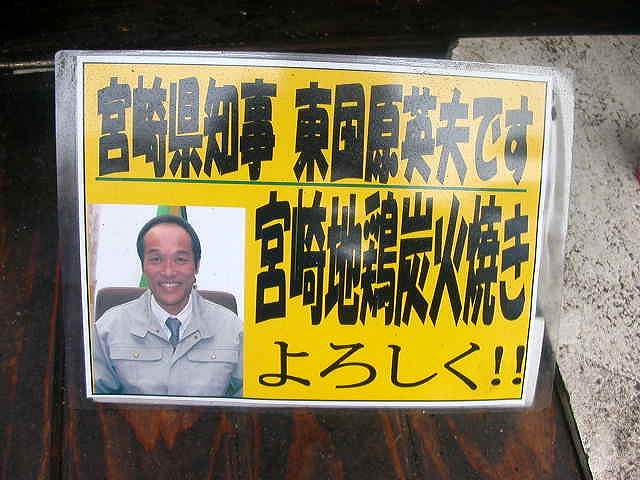 宮崎県知事 東国原英夫です
宮崎地鶏炭火焼き
よろしく!!